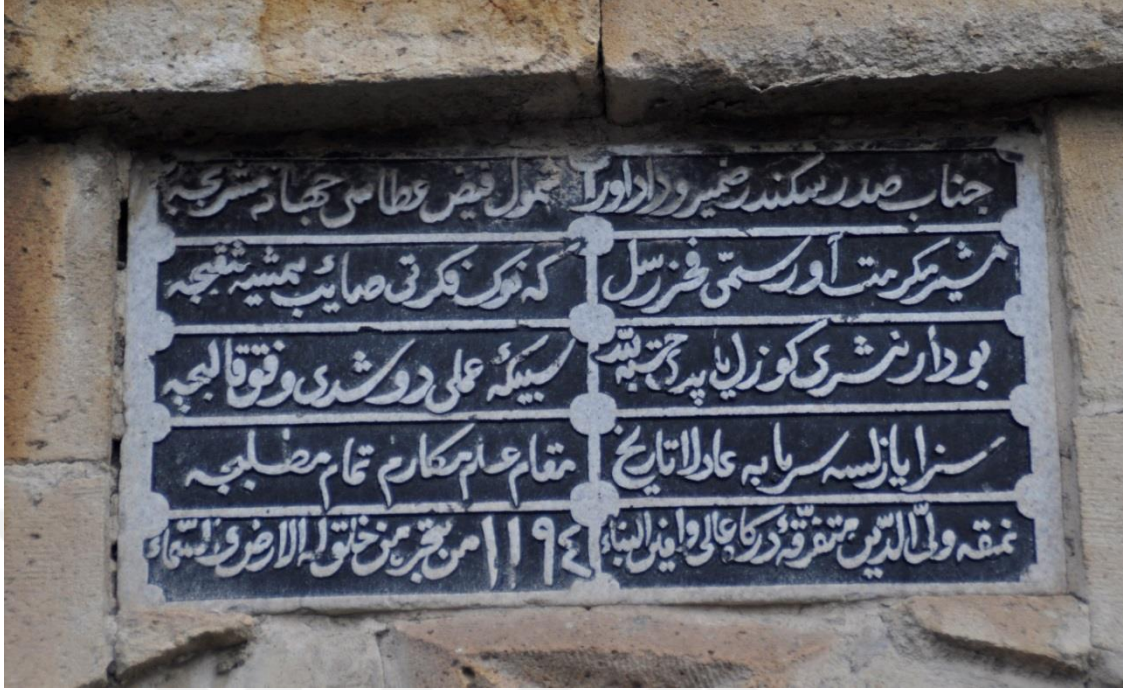 جناب صدر سكندر ضمير و دارا در شمول فيض عطاسى جهانه مشربجه
مشير مكرمت آور سمىّ فخر رسل كه نوك فكرتى صائب همشيه
بو دار نشرى كوزل ياپدى حسبة لله سبيكه عملى دوشدى وفق قالبجه
سزا يازلسه سر بابه عادلا تاريخ مقام علم مكارم تمام مطلبجه
نمقه ولىّ الدّين متفرّقهٔ دركاه عالى وامين البناء ١١٩٤ من خلق له الارض والسماء